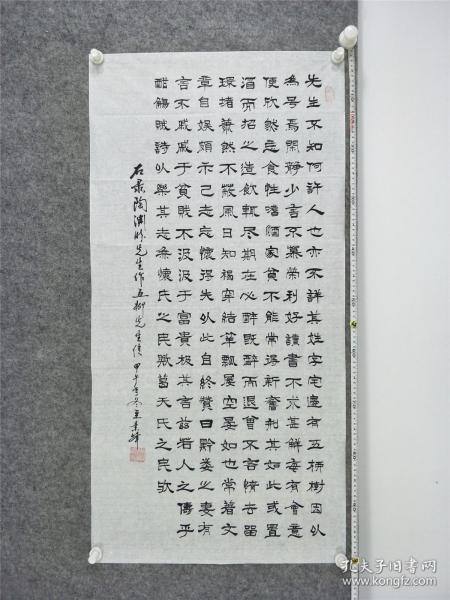 先生不知何許人也亦不詳其姓字宅邊有五柳樹因以
為号焉閑靜少言不慕榮利好讀書不求甚解每有會意
便欣然忘食性嗜酒家貧不能常得親舊知其如此或置
酒而招之造飲輒盡期在必醉既醉而退曾不吝情去留
環堵蕭然不蔽風日短褐穿結簞瓢屢空晏如也常著文
章自娛頗示己志忘懷得失以此自終贊曰黔婁之妻有
言不戚戚于貧賤不汲汲于富貴極其言茲若人之儔乎
酣觴賦詩以樂其志無懷氏之民歟葛天氏之民歟
右录陶渊明先生作五柳先生传 甲午年冬
孔夫子旧书网
www.kongfz.com